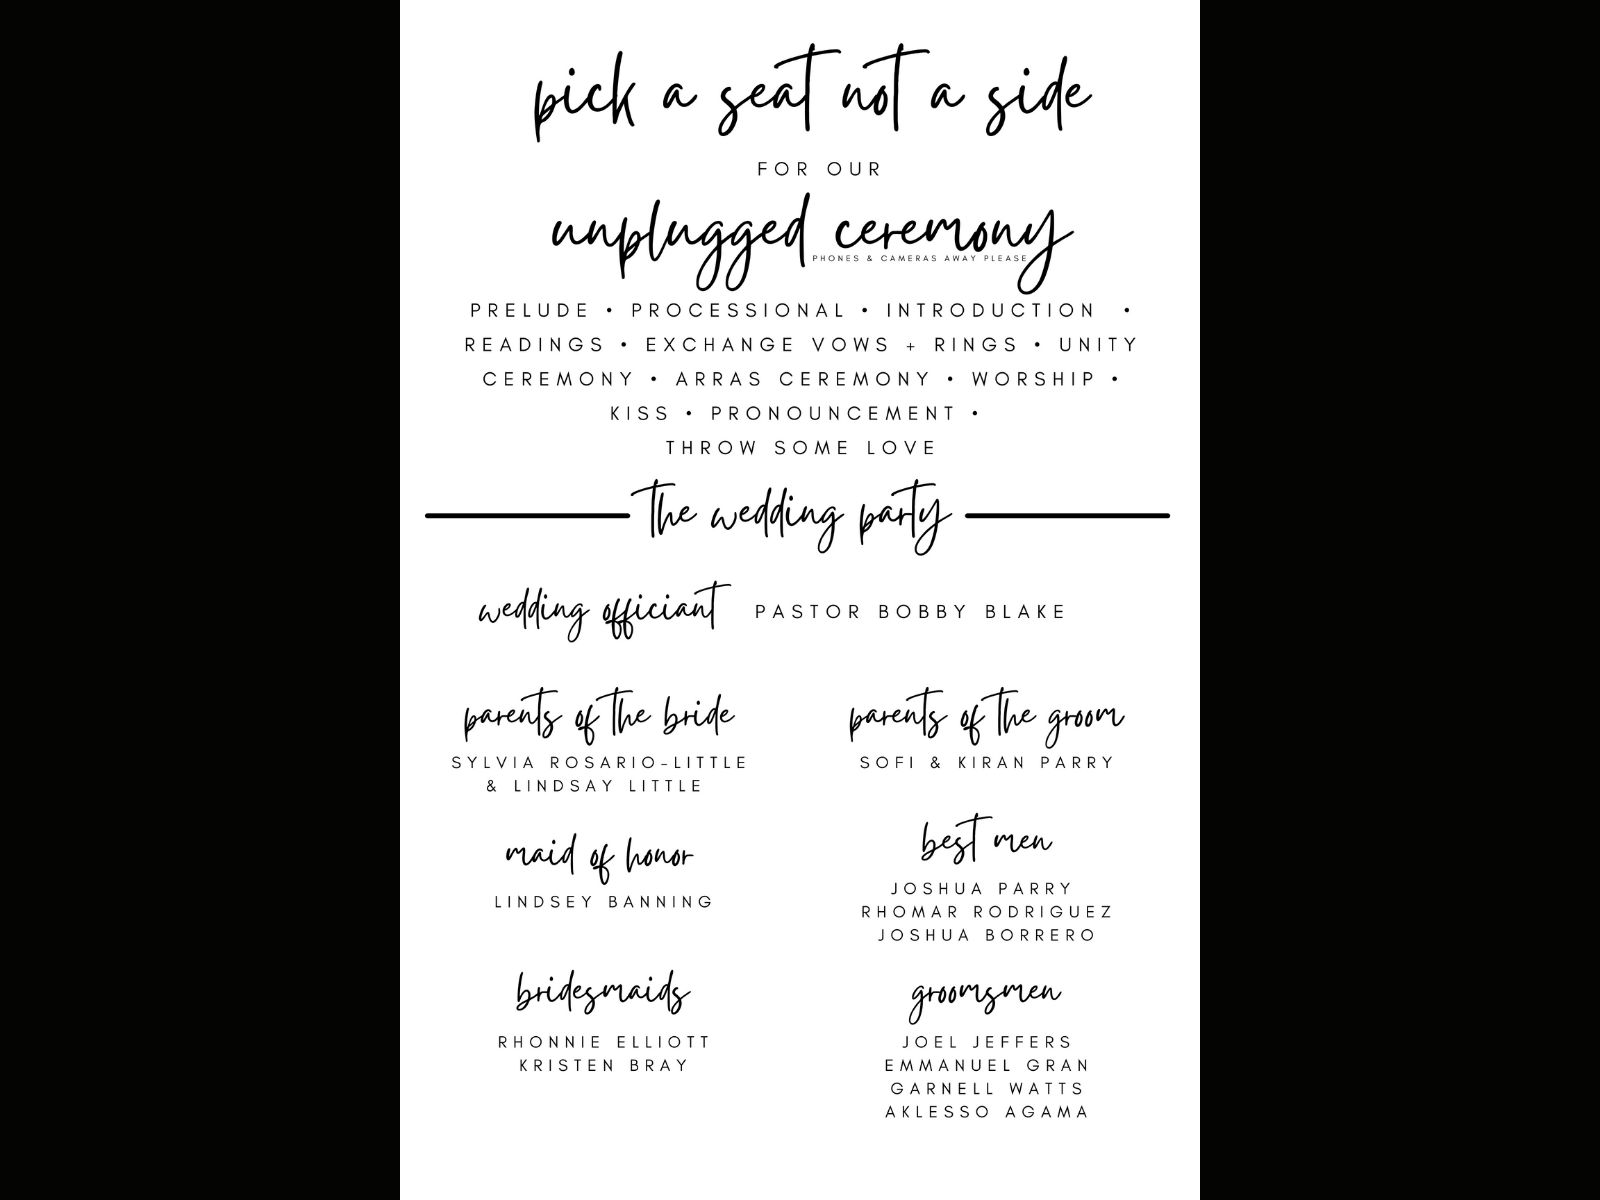 pick a seat not a side
FOR OUR
unplugged ceremony
PHONES & CAMERAS AWAY PLEASE
PRELUDE • PROCESSIONAL • INTRODUCTION •
READINGS • EXCHANGE VOWS + RINGS • UNITY
CEREMONY • ARRAS CEREMONY • WORSHIP •
KISS • PRONOUNCEMENT •
THROW SOME LOVE
the wedding party
wedding officiant PASTOR BOBBY BLAKE
parents of the bride
SYLVIA ROSARIO-LITTLE
& LINDSAY LITTLE
parents of the groom
SOFI & KIRAN PARRY
maid of honor
LINDSEY BANNING
best men
JOSHUA PARRY
RHOMAR RODRIGUEZ
JOSHUA BORRERO
bridesmaids
RHONNIE ELLIOTT
KRISTEN BRAY
groomsmen
JOEL JEFFERS
EMMANUEL GRAN
GARNELL WATTS
AKLESSO AGAMA